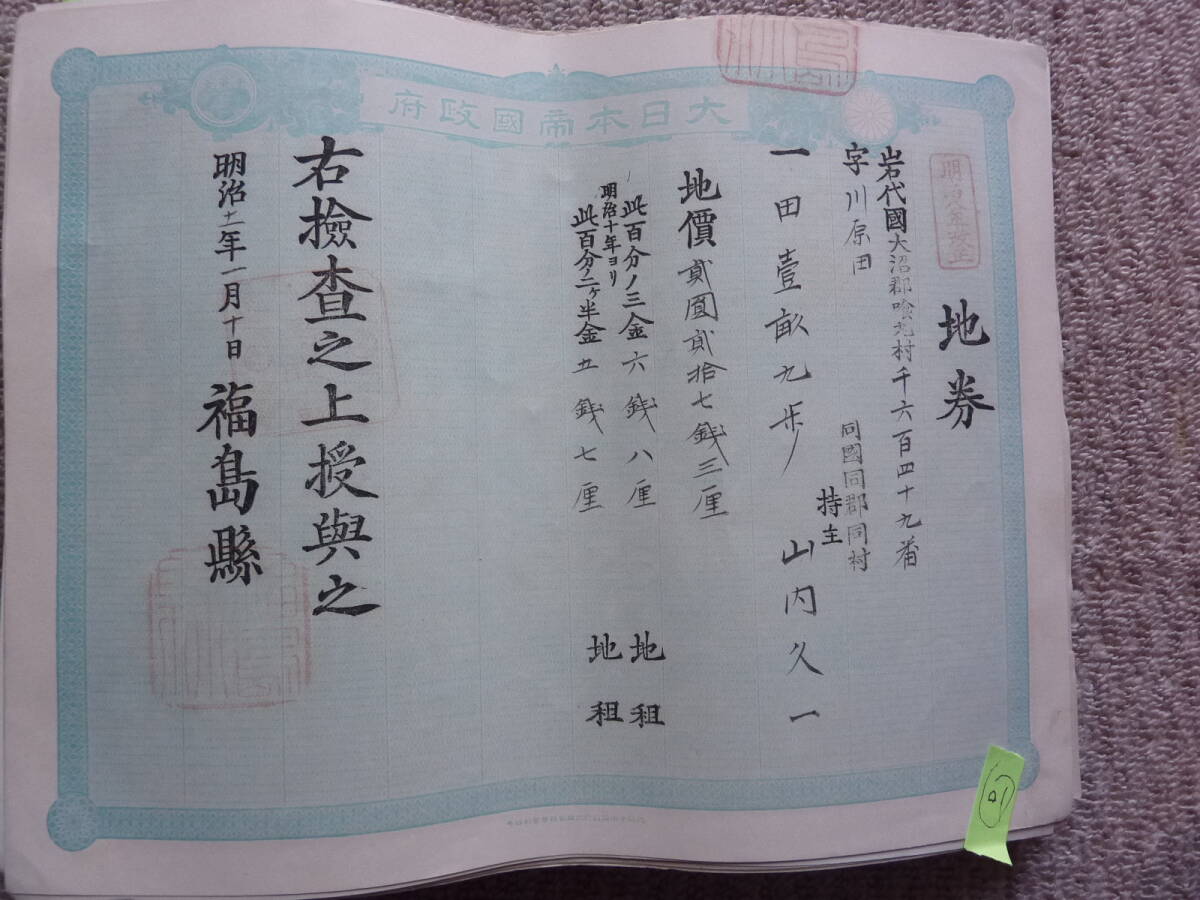 大日本帝國政府
地券
岩代國大沼郡喰丸村千六百四十九番
字川原田
同國同郡同村
持主 山内久一
一田壹畝九歩
地價貳圓貳拾七銭三厘
此百分ノ三金六銭八厘 地租
明治十年ヨリ
此百分ノ二ケ半金五銭七厘 地租
右撿査之上授與之
明治十一年一月十日 福島縣